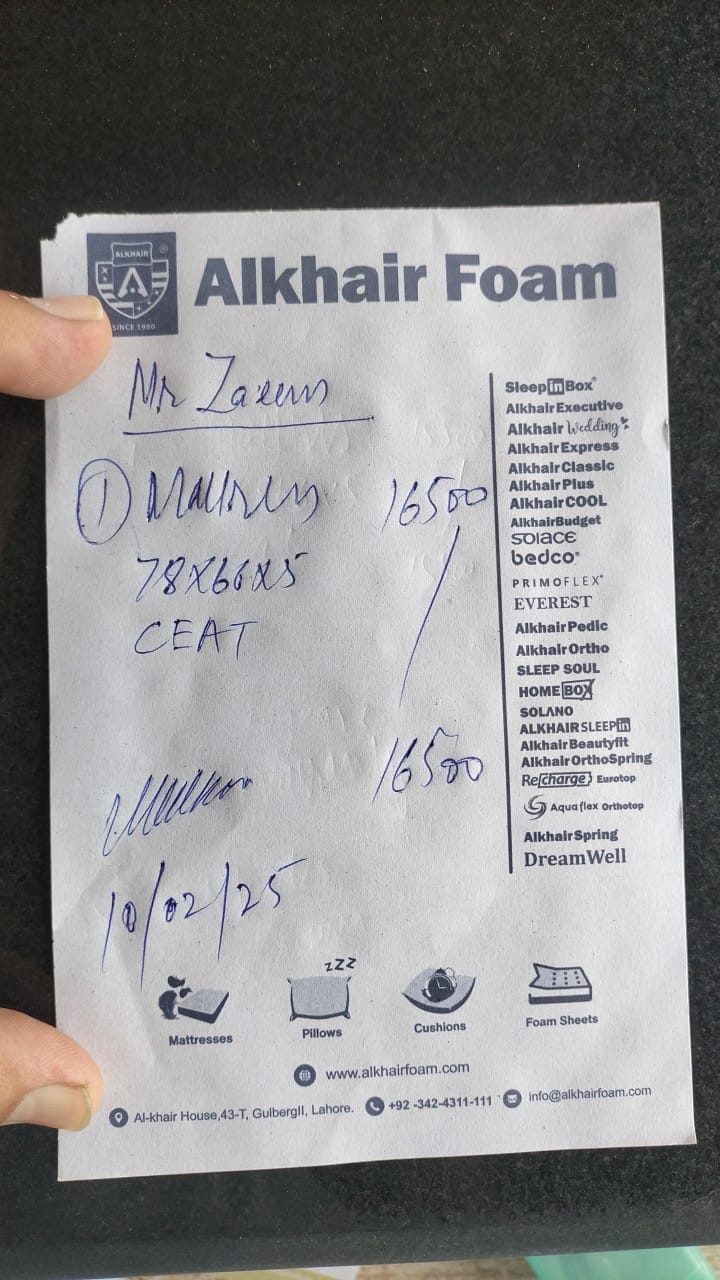 ALKHAIR
SINCE 1980
Alkhair Foam
Mr Zaeem
1 Mattress 16500
78X66X5
CEAT
16500
10/02/25
Sleep in Box
Alkhair Executive
Alkhair Wedding
Alkhair Express
Alkhair Classic
Alkhair Plus
Alkhair COOL
AlkhairBudget
SOLACE
bedco
PRIMOFLEX
EVEREST
Alkhair Pedic
Alkhair Ortho
SLEEP SOUL
HOME BOX
SOLANO
ALKHAIR SLEEP in
Alkhair Beautyfit
Alkhair OrthoSpring
Recharge Eurotop
Aqua flex Orthotop
Alkhair Spring
DreamWell
zzZ
Mattresses Pillows Cushions Foam Sheets
www.alkhairfoam.com
Al-khair House,43-T, GulbergII, Lahore. +92 -342-4311-111 info@alkhairfoam.com